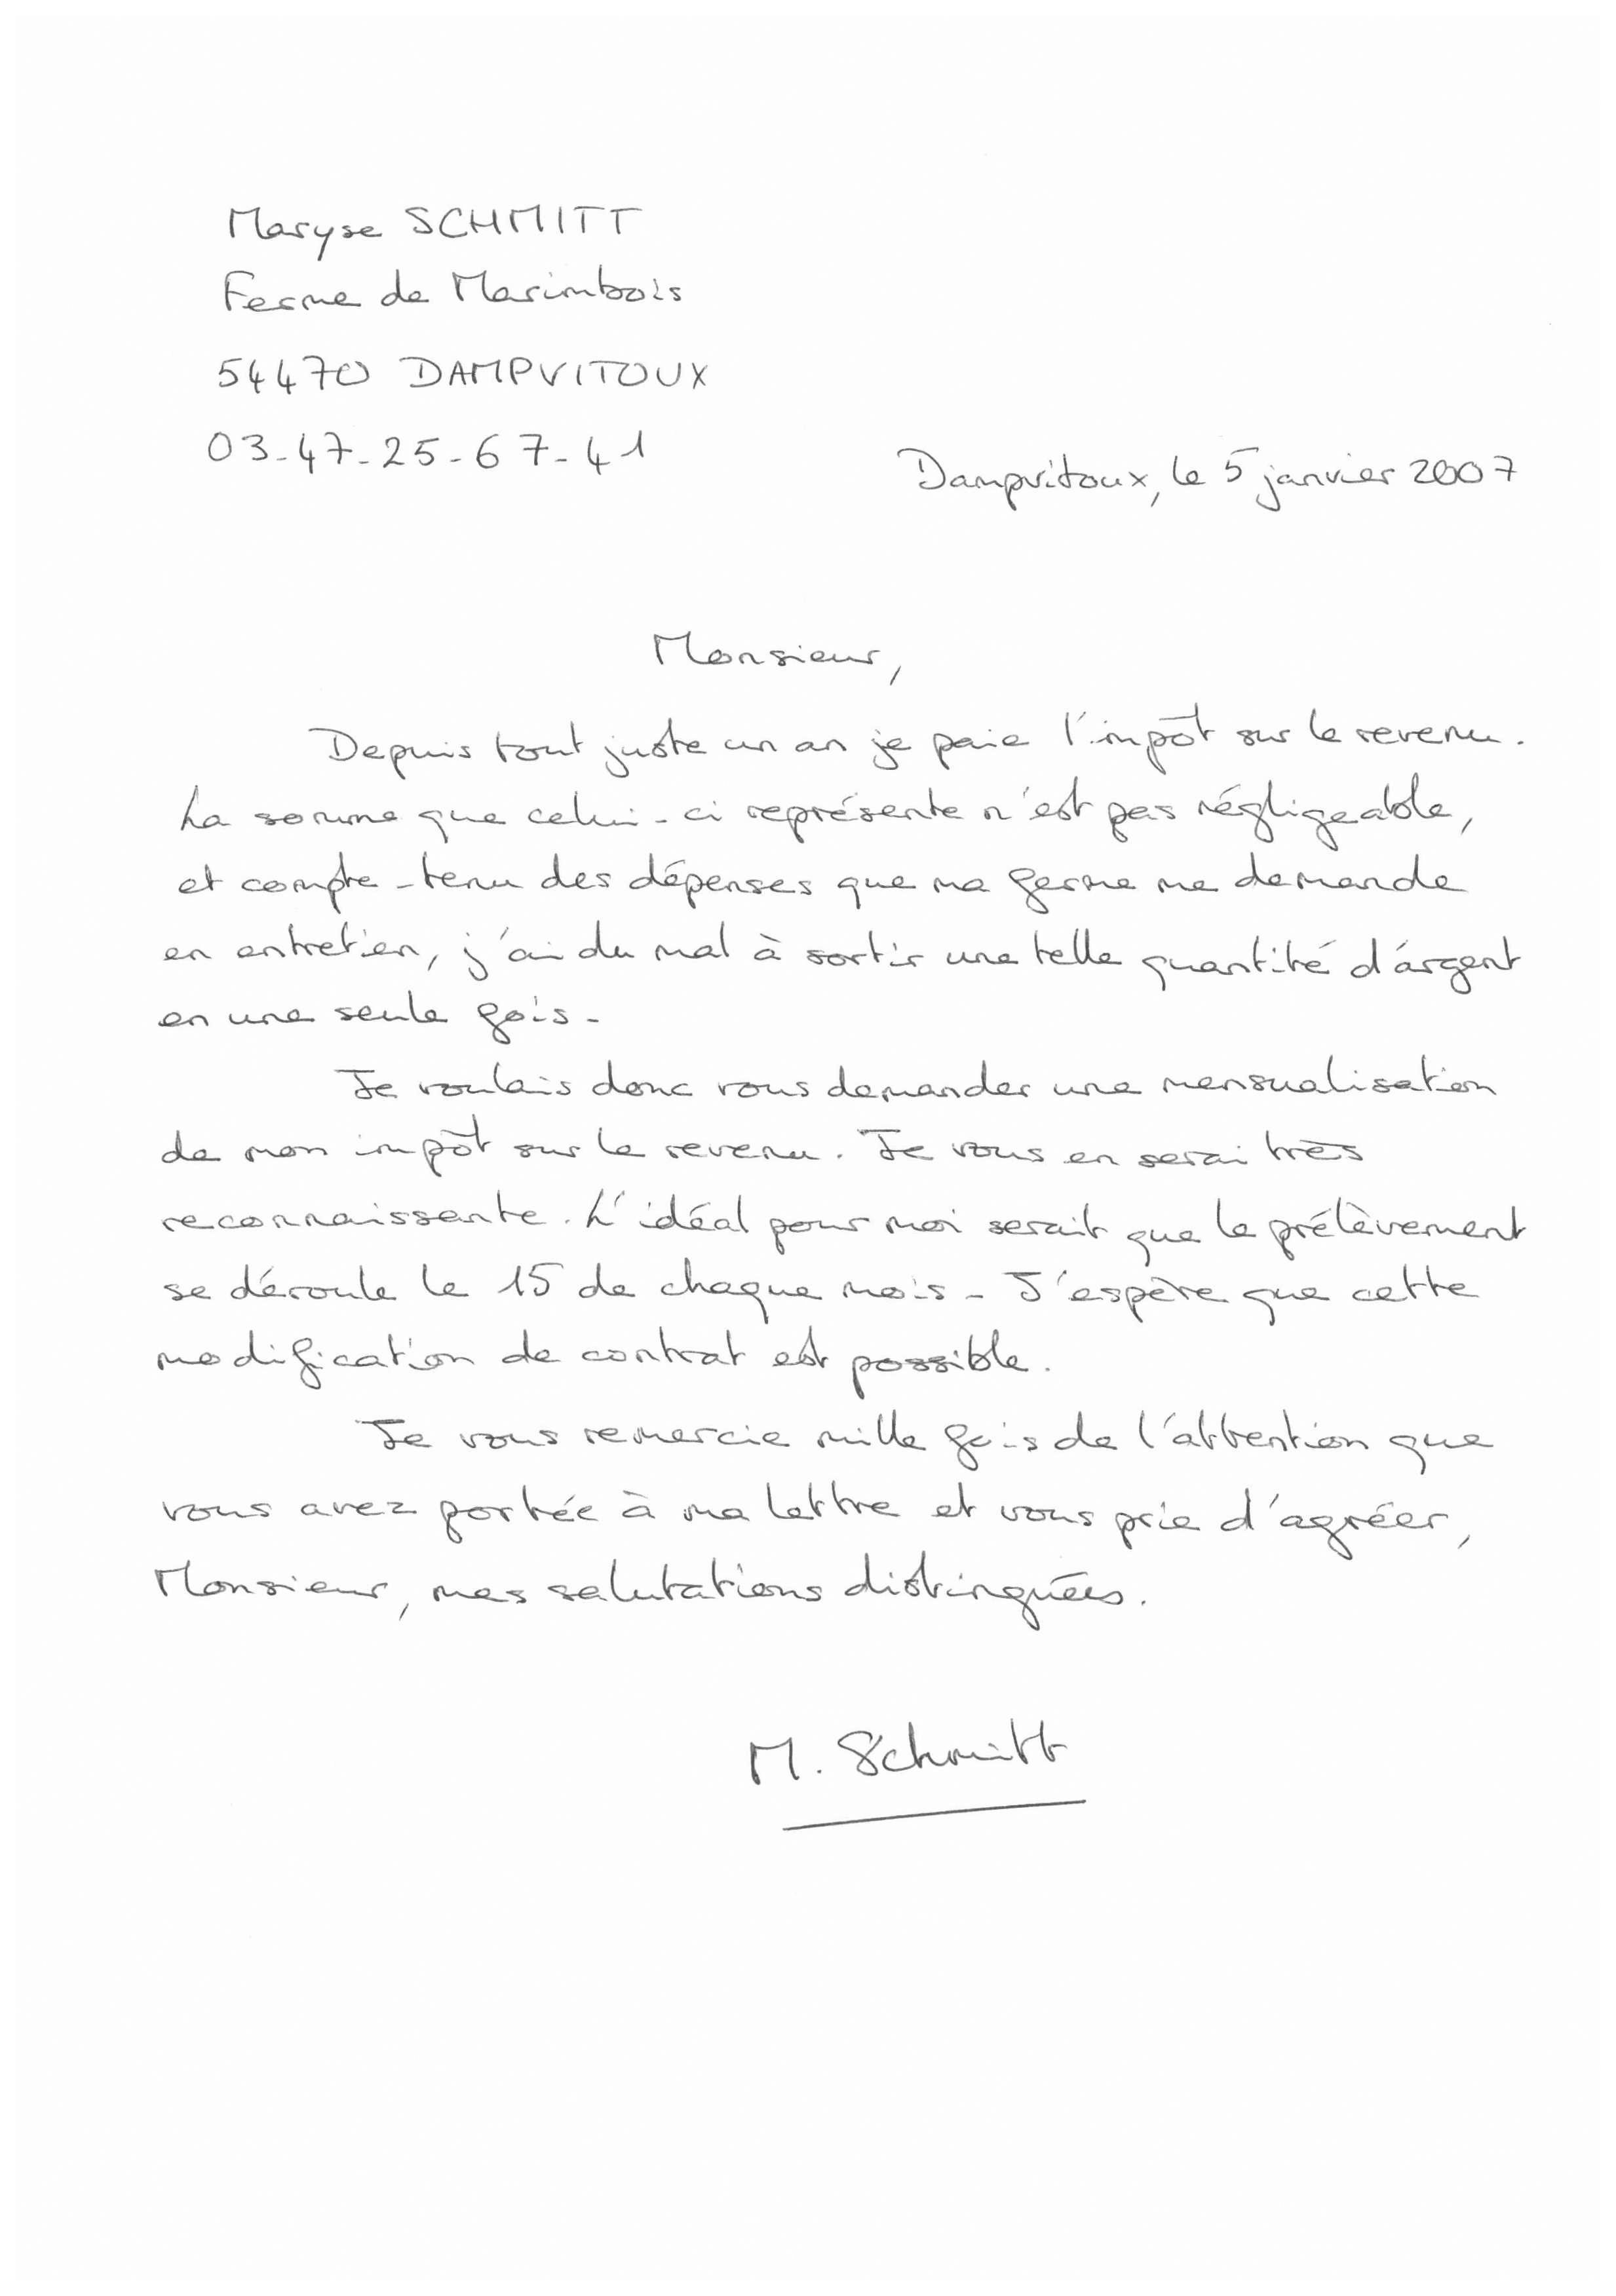 Maryse SCHMITT
Ferme de Marimbois
54470 DAMPVITOUX
03-47-25-67-41
Dampvitoux, le 5 janvier 2007
Monsieur,
Depuis tout juste un an je paie l'impôt sur le revenu.
La somme que celui-ci représente n'est pas négligeable,
et compte-tenu des dépenses que ma ferme me demande
en entretien, j'ai du mal à sortir une telle quantité d'argent
en une seule fois.
Je voulais donc vous demander une mensualisation
de mon impôt sur le revenu. Je vous en serai très
reconnaissante. L'idéal pour moi serait que le prélèvement
se déroule le 15 de chaque mois. J'espère que cette
modification de contrat est possible.
Je vous remercie mille fois de l'attention que
vous avez portée à ma lettre et vous prie d'agréer,
Monsieur, mes salutations distinguées.
M. Schmitt